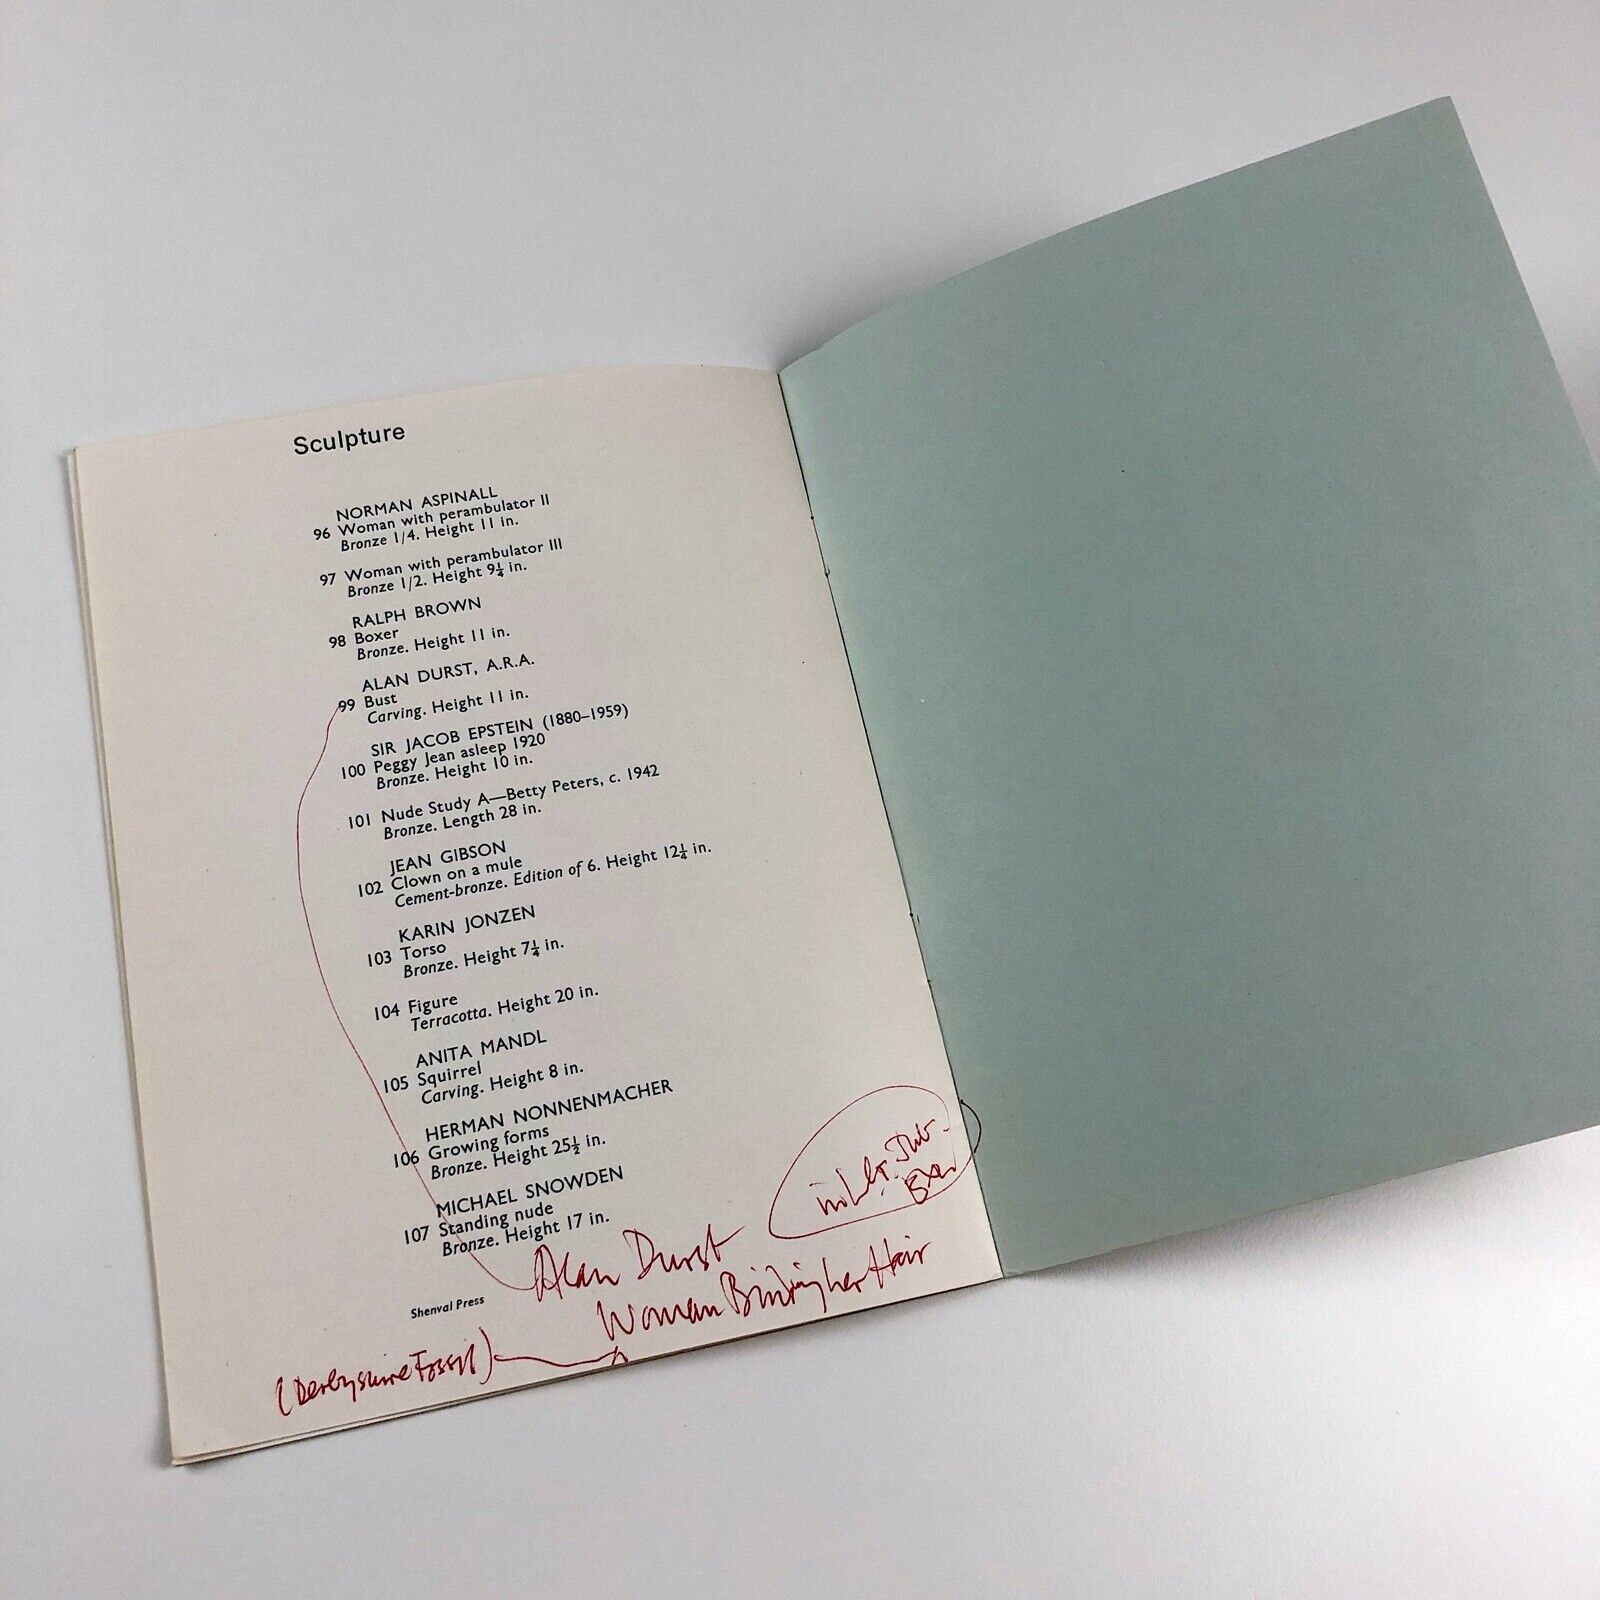 Sculpture
NORMAN ASPINALL
96 Woman with perambulator II
Bronze 1/4. Height 11 in.
97 Woman with perambulator III
Bronze 1/2. Height 9¼ in.
RALPH BROWN
98 Boxer
Bronze. Height 11 in.
ALAN DURST, A.R.A.
99 Bust
Carving. Height 11 in.
SIR JACOB EPSTEIN (1880–1959)
100 Peggy Jean asleep 1920
Bronze. Height 10 in.
101 Nude Study A—Betty Peters, c. 1942
Bronze. Length 28 in.
JEAN GIBSON
102 Clown on a mule
Cement-bronze. Edition of 6. Height 12¼ in.
KARIN JONZEN
103 Torso
Bronze. Height 7¼ in.
104 Figure
Terracotta. Height 20 in.
ANITA MANDL
105 Squirrel
Carving. Height 8 in.
HERMAN NONNENMACHER
106 Growing forms
Bronze. Height 25½ in.
MICHAEL SNOWDEN
107 Standing nude
Bronze. Height 17 in.
Shenval Press
Alan Durst
Woman Binding her Hair
(Derbyshire Fossil)